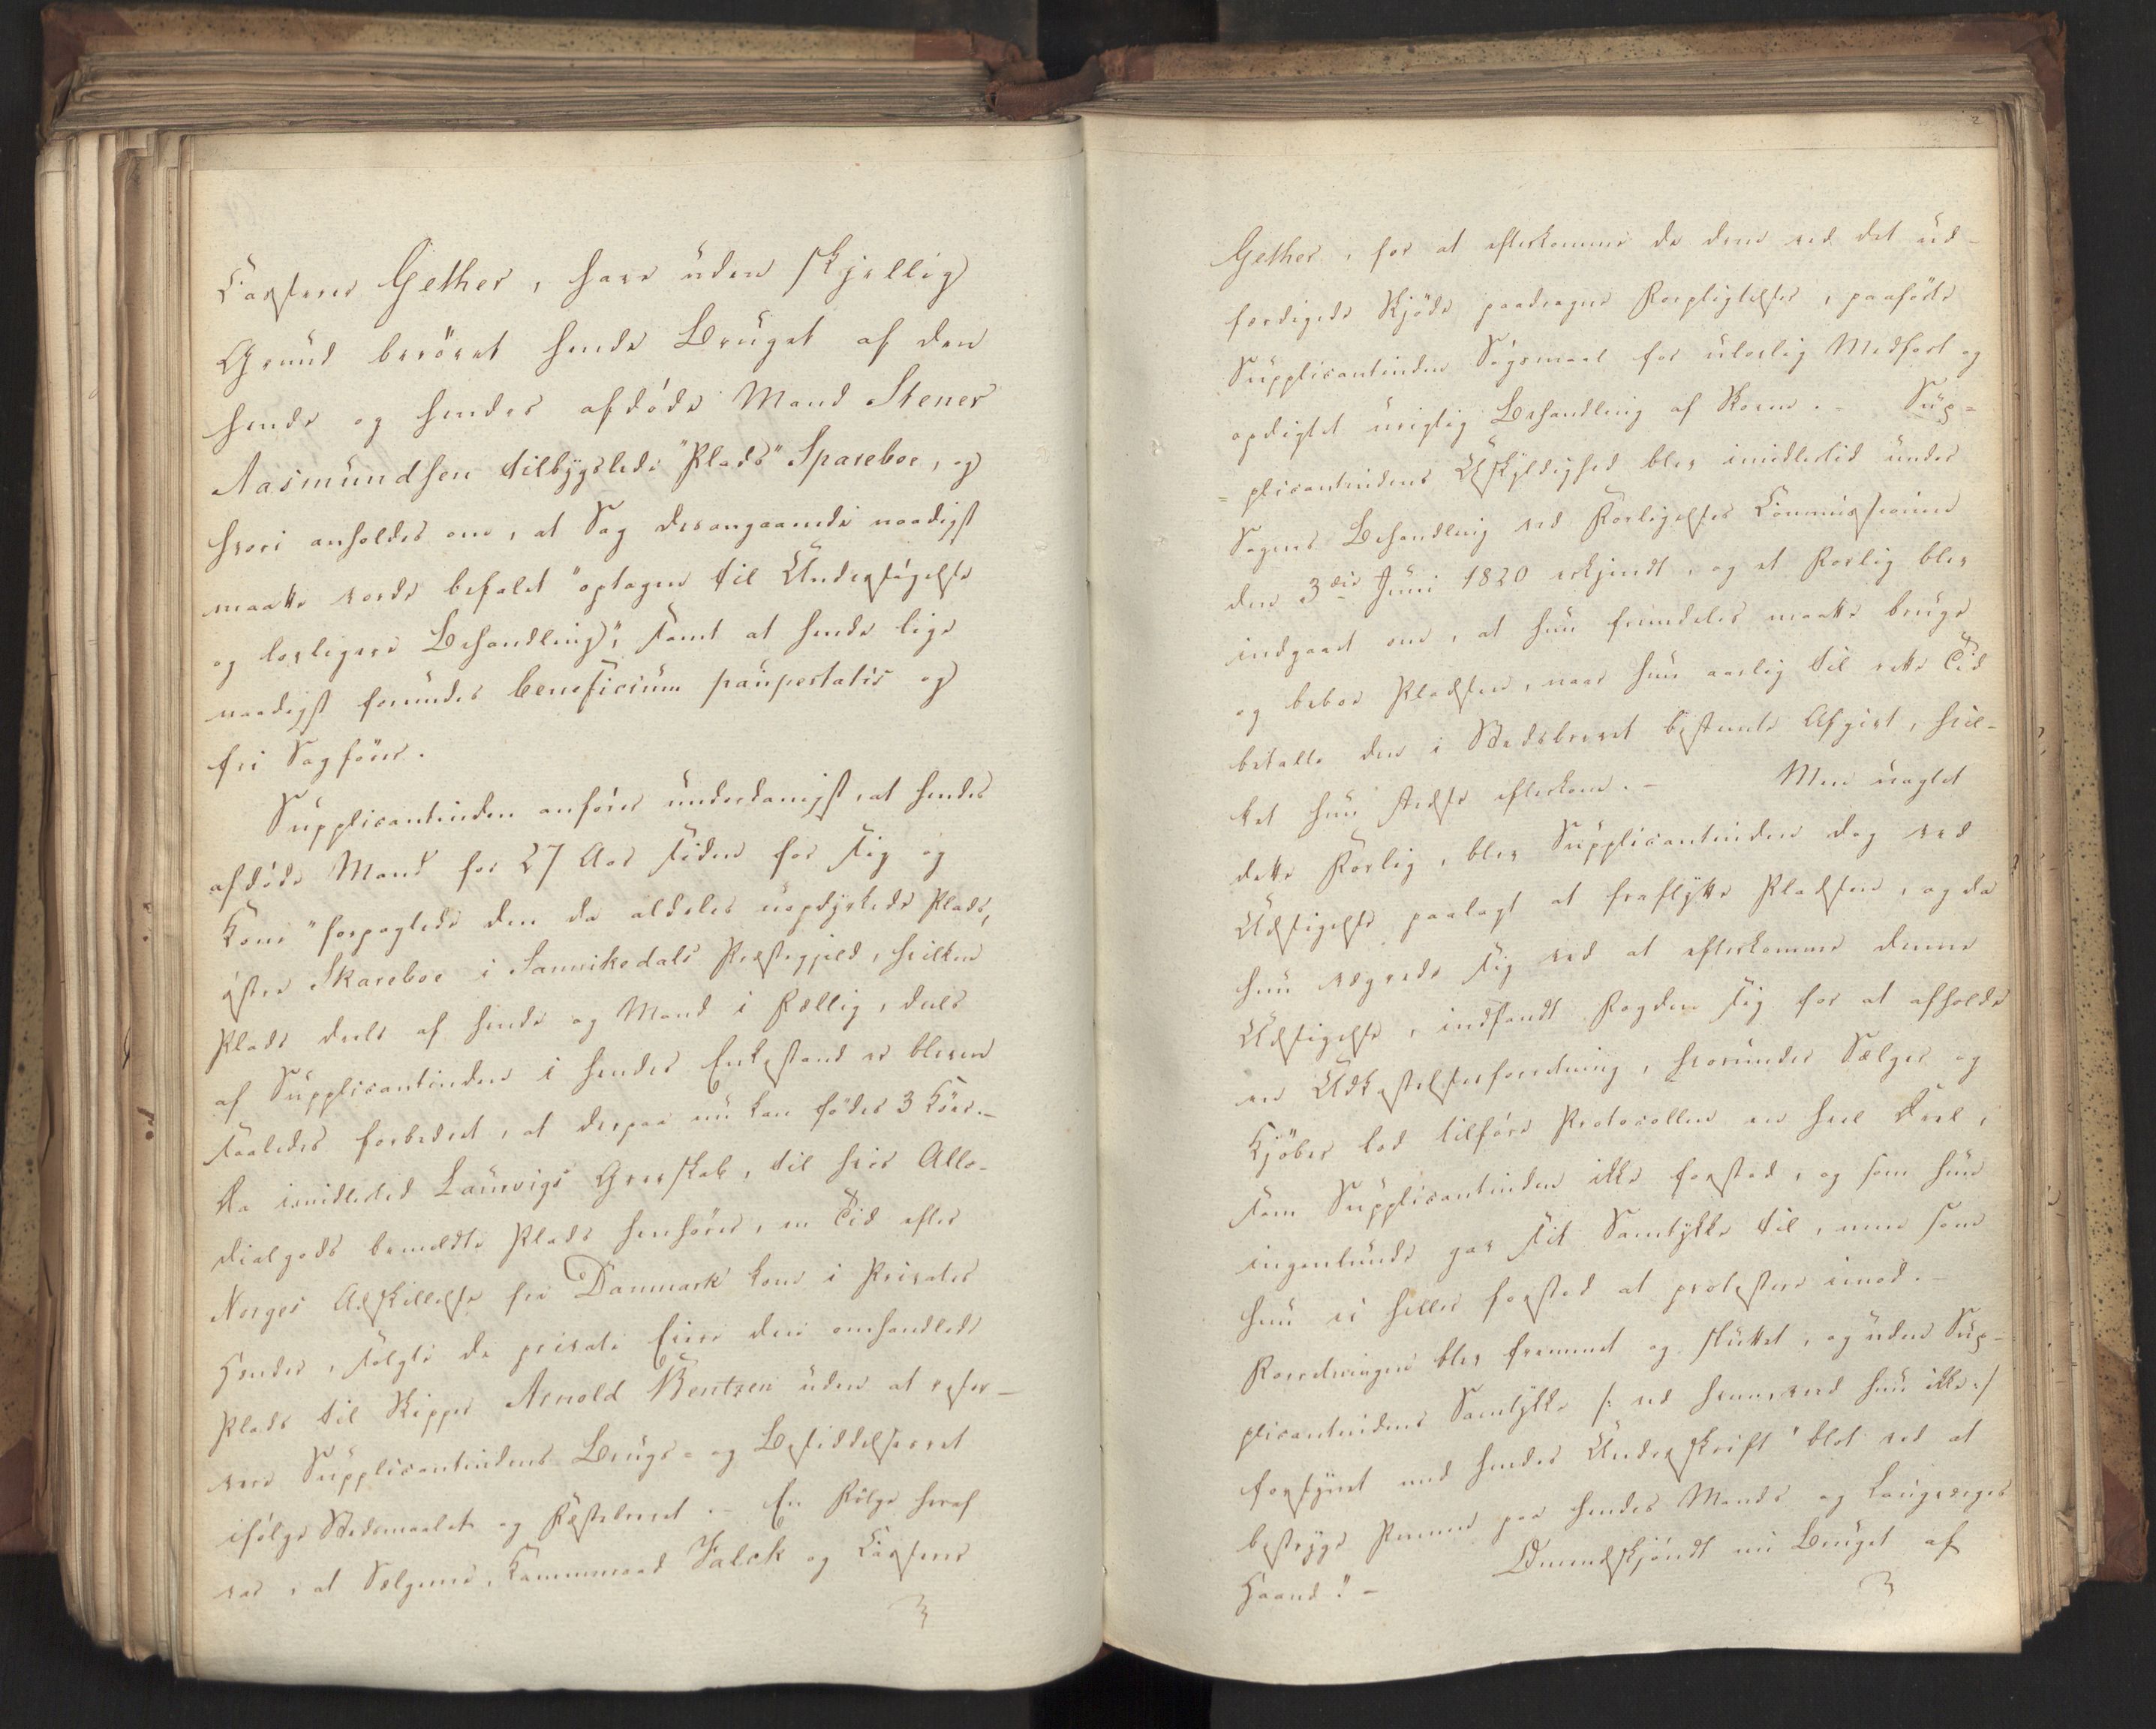 Carsten Gether, have uden skjellig
Grund berøvet hende Bruget af den
hende og hendes afdøde Mand Stener
Aasmundsen tilbygslede "Plads" Spareboe, og
hvori anholdes om, at Sag desangaaende naadigst
maatte vorde befalet "optagen til Undersøgelse
og lovligere Behandling", samt at hende lige
naadigst forundes beneficium paupertatis og
fri Sagfører.
Supplicantinden anfører underdanigst, at hendes
afdøde Mand for 27 Aar siden for sig og
Kone "forpagtede den da aldeles uopdyrkede Plads,
østre Skareboe i Sannikedals Præstegjeld, hvilken
Plads deels af hende og Mand i Fællig, deels
af Supplicantinden i hendes Enkestand er bleven
saaledes forbedret, at derpaa nu kan fødes 3 Køer.-
Da imidlertid Laurvigs Grevskab, til hvis Allo-
dialgods bemeldte Plads henhører, en Tid efter
Norges Adskillelse fra Danmark kom i Privates
Hænder, solgte de private Eiere den omhandlede
Plads til Skipper Arnold Bentzen uden at reser-
vere Supplicantindens Brugs- og Besiddelsesret
ifølge Stedsmaalet og Fæstebrevet.- En Følge heraf
var, at Sælgerne, Kammerraad Falck og Carsten
Gether, for at efterkomme de dem ved det ud-
færdigede Skjøde paadragne Forpligtelser, paaførte
Supplicantinden Søgsmaal for ulovlig Medfart og
opdigtet urigtig Behandling af Skoven.- Sup-
plicantindens Uskyldighed blev imidlertid under
Sagens Behandling ved Forligelses Commissionen
den 3die Juni 1820 erkjendt, og et Forlig blev
indgaaet om, at hun fremdeles maatte bruge
og beboe Pladsen, naar hun aarlig til rette Tid
betalte den i Stedsbrevet bestemte Afgivt, hvil-
ket hun stedse efterkom.- Men uagtet
dette Forlig, blev Supplicantinden dog ved
Udsigelse paalagt at fraflytte Pladsen, og da
hun vægrede sig ved at efterkomme denne
Udsigelse, indfandt Fogden sig for at afholde
en Udkastelsesforretning, hvorunder Sælger og
Kjøber lod tilføre Protocollen en heel Deel,
som Supplicantinden ikke forstod, og som hun
ingenlunde gav sit Samtykke til, men som
hun ei heller forstod at protestere imod.-
Forretningen blev fremmet og sluttet, og uden Sup-
plicantindens Samtykke /: ved hvem veed hun ikke :/
forsynet med hendes Underskrift "blot ved at
bestryge Pennen paa hendes Mands og Laugværges
Haand".- Omendskjøndt nu Bruget af